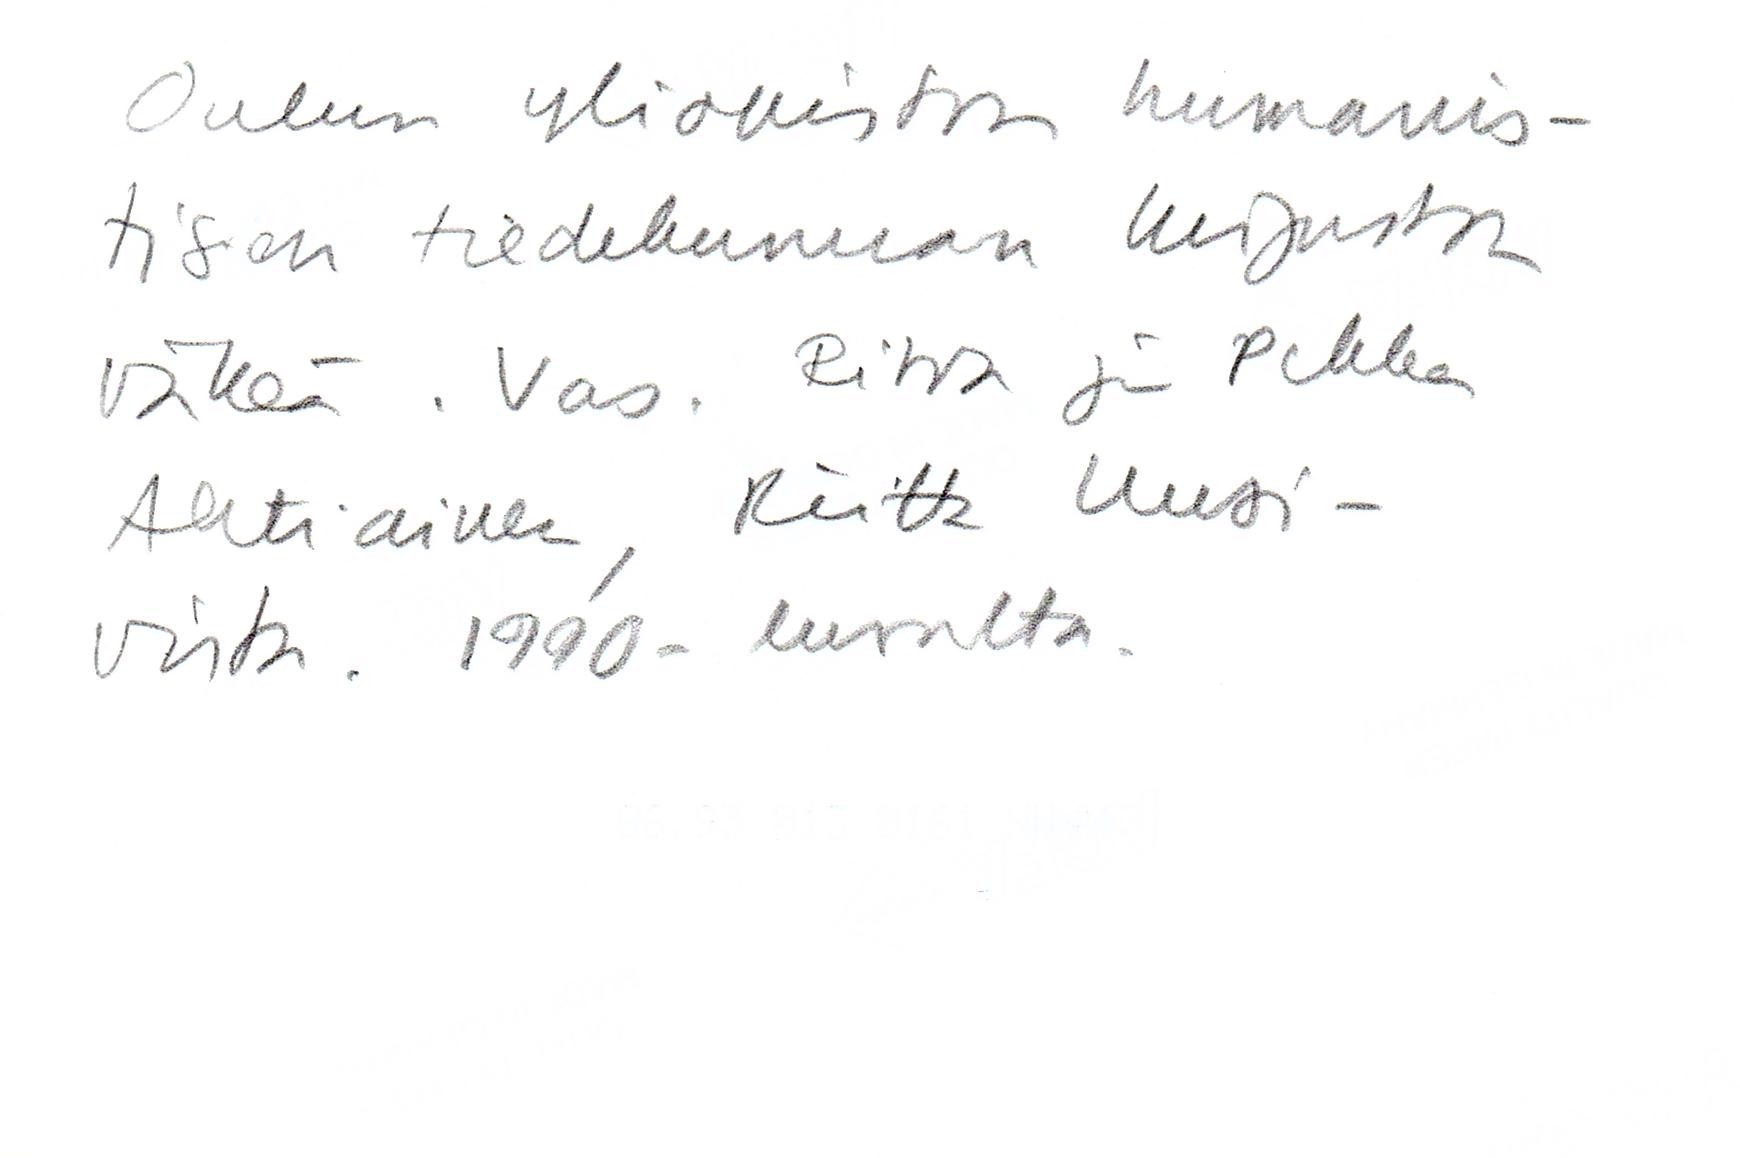 Oulun yliopiston humanis-
tisen tiedekunnan kirjaston
väkeä. Vas. Ritva ja Pekka
Ahtiainen, Riitta Uusi-
virta. 1990-luvulta.